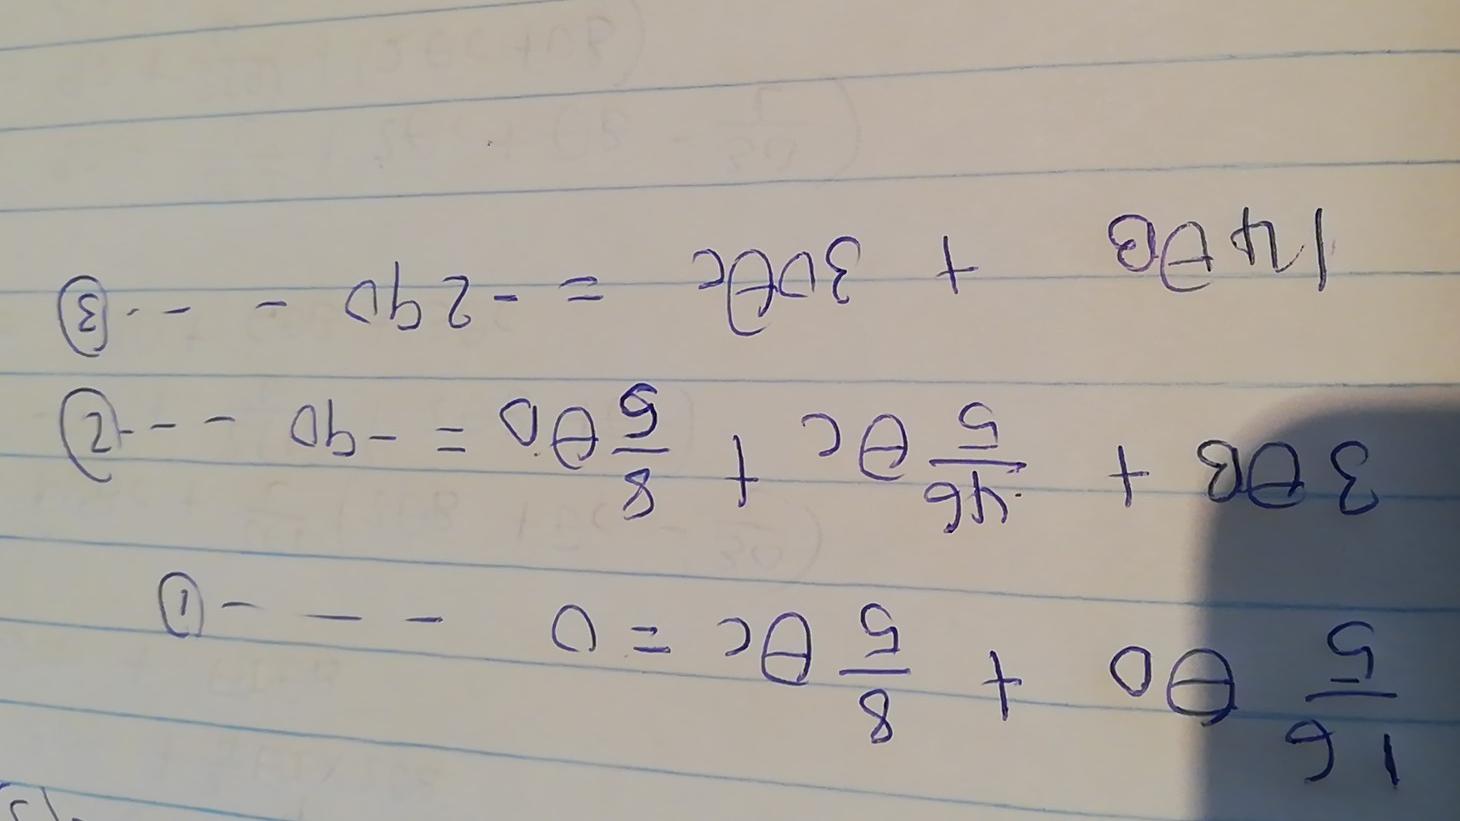 16/5 θD + 8/5 θC = 0 - - - - ①
3θB + 46/5 θC + 8/5 θD = -90 - - - ②
14θB + 30θC = -290 - - - ③